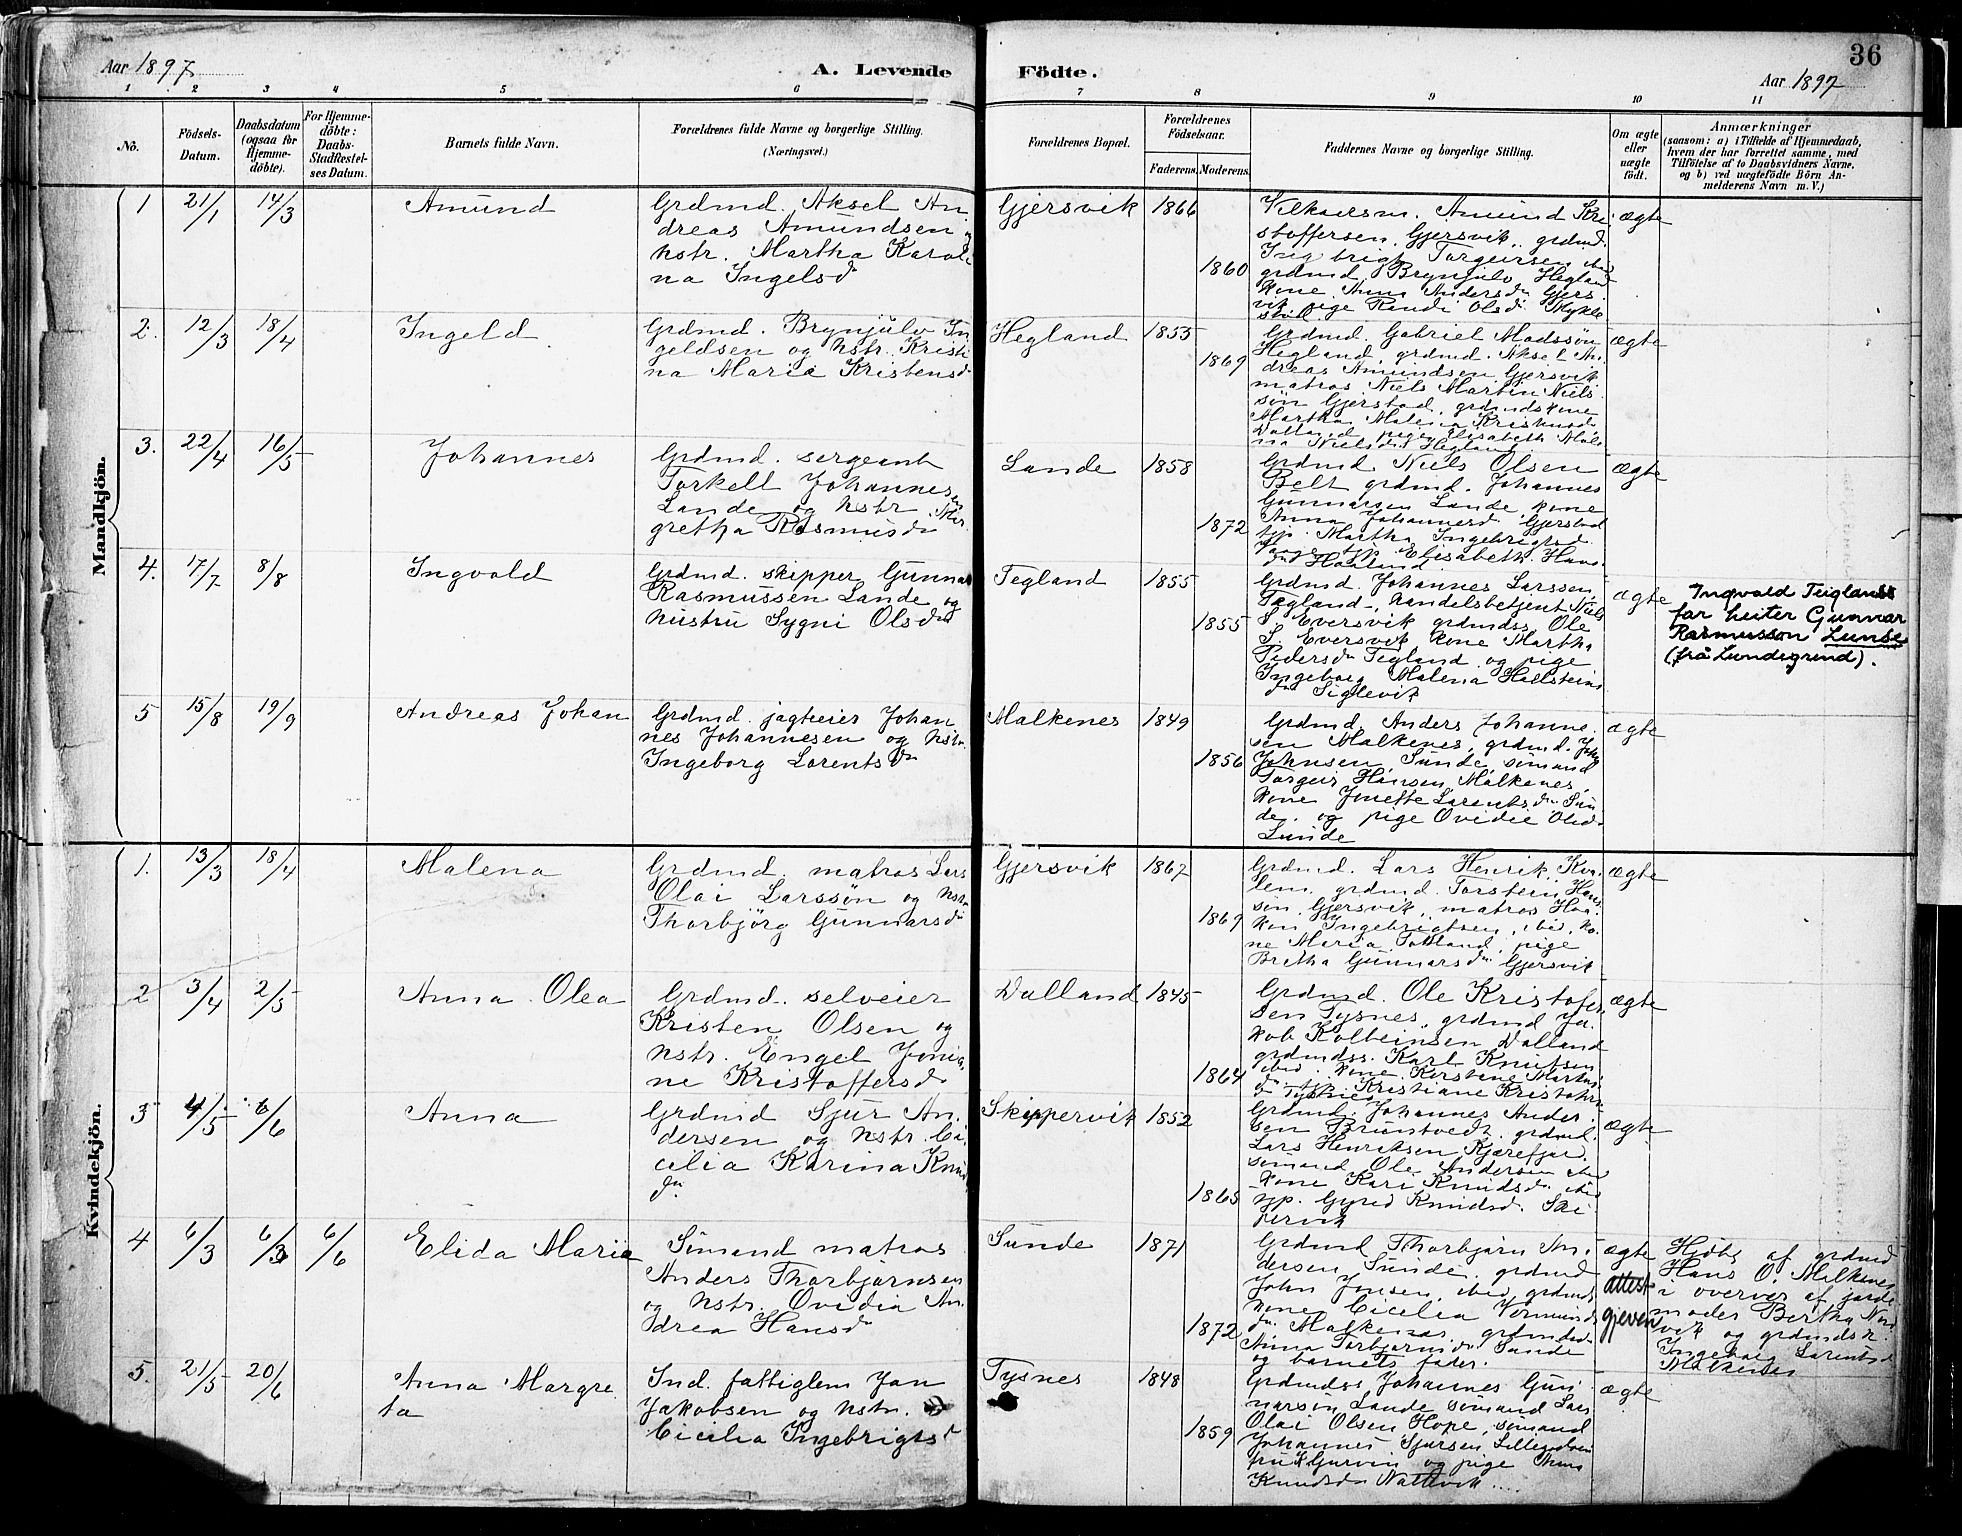 36
Aar 1897
A. Levende
Födte.
Aar 1897
1 2 3 4 5 6 7 8 9 10 11
No.
Födsels-
Datum.
Daabsdatum
(ogsaa for
Hjemme-
döbte).
For Hjemme-
döbte:
Daabs-
Stadfestel-
ses Datum.
Barnets fulde Navn.
Forældrenes fulde Navne og borgerlige Stilling.
(Næringsvei.)
Forældrenes Bopæl.
Forældrenes
Födselsaar.
Faderens.
Moderens.
Faddernes Navne og borgerlige Stilling.
Om ægte
eller
uægte
födt.
Anmærkninger
(saasom: a) i Tilfælde af Hjemmedaab,
hvem der har forrettet samme, med
Tilföielse af to Daabsvidners Navne,
og b) ved uægtefödte Börn An-
melderens Navn m. V.)
Mandkjön.
1 21/1 14/3 Amund
Grdmd. Aksel An
dreas Amundsen
hstr. Martha Karoli
na Ingelsd
Gjersvik 1866
1860
Amund Kri
stoffersen, Gjersvik, grdmd.
Ingbrigt Torgeirsen ibid
grdmd. Brynjulv Hegland
kone Anna Andersdn Gjers
vik pige Olsd
ægte
2. 12/3 18/4 Ingeld
Grdmd. Brynjulv In
geldsen og hstr. Kristi
na Maria Kristensd
Hegland 1853
1869
Grdmd. Gabriel Madssøn
Hegland, grdmd. Aksel An
dreas Amundsen Gjersvik
matros Niels Martin Niels
søn Gjerstad, grdmds kone
Martha Malena
Dalland pige Elisabeth Male
na Hegland
ægte
3. 22/4 16/5 Johannes
Grdmd. sergeant
Torkell Johannes
en
Lande og hstr. Mar
gretha Rasmusdn
Lande 1858
1872
Grdmd. Niels Olsen
Belt grdmd. Johannes
Gunnarsen Lande kone
Anna Johannesd Gjerstad
tjp. Martha Ingebrigtsd.
tjp. Elisabeth Hans
dn
ægte
4. 17/7 8/8 Ingvald
Grdmd. skipper Gunnar
Rasmussen Lande og
hustru Sygni Olsdn
Tegland 1855
1855
Grdmd. Johannes Larssen
Tegland, handelsbetjent Niels
S. Eversvik grdmdss Ole
S. Eversvik kone Martha
Pedersdn Tegland og pige
Ingeborg Malena Hallsteins
dn Siglevik
ægte
Ingvald Teiglands
far heiter Gunnar
Rasmusson Lunde
(frå Lundegrend).
5 15/8 19/9 Andreas Johan
Grdmd. jagteier Johan
nes Johannesen og hstr.
Ingeborg Lorentsdn
Malkenes 1849
1856
Grdmd. Anders Johanne
sen Malkenes, grdmd. John
Johnsen Sunde sømand
Torgeir Hansen Malkenes,
kone Jonette Larentsdn Sun
de. og pige Ovidie Olsd
Lunde
ægte
Kvindekjön.
1. 13/3 18/4 Malena
Grdmd. matros Lars
Olai Larssøn og hstr
Thorbjörg Gunnarsdn
Gjersvik 1867
1869
Grdmd. Lars Henrik Kva
lem. grdmd. Torstein Hans
søn. Gjersvik, matros Haa
kon Ingebrigtsen, ibid, ko
ne Maria Totland, pige
Bretha Gunnarsdn Gjersvik
ægte
2 3/4 2/5 Anna Olea
Grdmd. selveier
Kristen Olsen og
hstr. Engel Joni
ne Kristoffersd
Dalland 1845
1864
Grdmd. Ole Kristofer
sen Tysnes, grdmd Ja
kob Kolbeinsen Dalland
grdmdss. Karl Knutsen
ibid. kone Kirstene
dn tj. Kristiane Kristofers
d Tysnes
ægte
3 4/5 6/6 Anna
Grdmd Sjur An
dersen og hstr. Ci
cilia Karina Knuds
dn
Skippervik 1852
1865
Grdmd. Johannes Ander
sen Bruntvedt, grdmd.
Lars Henriksen Kjærefjor
sømand Ole Andersen ibid
kone Kari Knudsdn ibid
tjp. Gyrid Knudsd. Ski
pervik
ægte
4 6/3 6/3 6/6 Elida Maria
Sömand matros
Anders Thorbjørnsen
og hstr. Ovidia An
drea Hansd
Sunde 1871
1872
Grdmd Thorbjørn An
dersen Sunde, grdmd
John Jonsen, ibid, grdmds
kone Cicelia
dn Malkenes, grdmdsd.
Anna Torbjørnsdn Sunde
og barnets fader.
ægte
attest
gjeven
Hjdbt af grdmd
Hans O. Malkenes
i overvær af jorde
moder Bertha Nor
vik og grdmdsk.
Ingeborg Larentsd
Malkenes
5. 21/5 20/6 Anna Margre
ta
Ind. fattiglem Jan
Jakobsen og hstr.
Cicilia Ingebrigtsd
Tysnes 1848
1859
Grdmdss Johannes Gun
narsen Lande sømand Lars
Olai Olsen Hope, sømand
Johannes Sjursen
og pige Anna
Knudsdn Nattevik
ægte